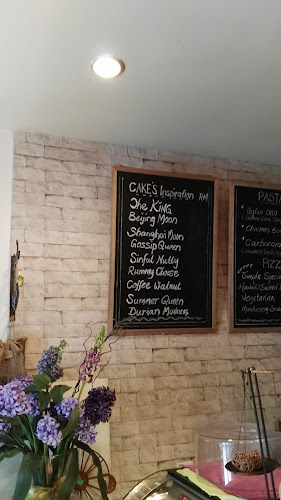 CAKE'S Inspiration RM
The KING
Beijing Moon
Shanghai Moon
Gossip Queen
Sinful Nutty
Rummy Cheese
Coffee Walnut
Summer Queen
Durian Madness
PASTA
* Aglio Olio
* Chicken Bo
* Carbonara
PIZZ
Simple Specia
Vegetarian